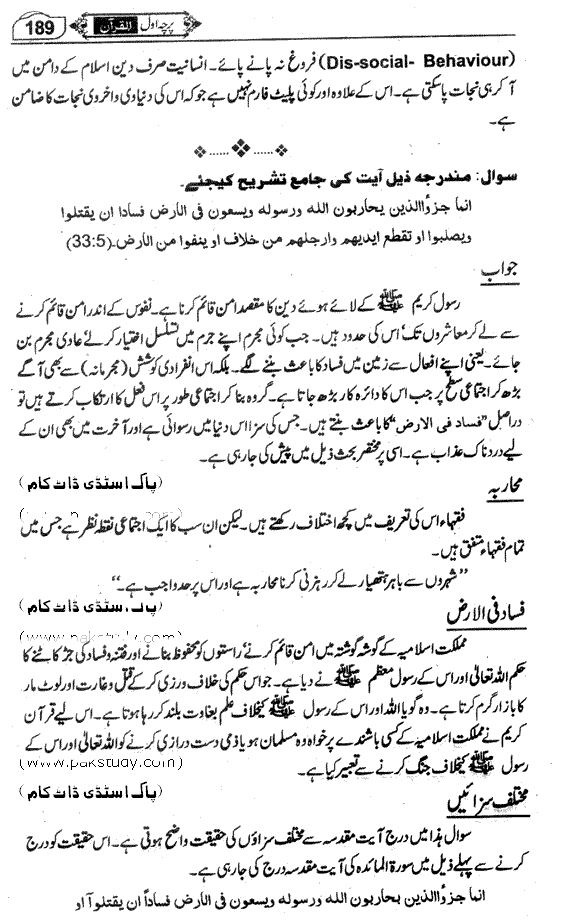 پرچہ اول القرآن 189
(Dis-social- Behaviour) فروغ نہ پانے پائے۔ انسانیت صرف دین اسلام کے دامن میں
آ کر ہی نجات پا سکتی ہے۔ اس کے علاوہ اور کوئی پلیٹ فارم نہیں ہے جو کہ اس کی دنیاوی و اخروی نجات کا ضامن
ہے۔
سوال: مندرجہ ذیل آیت کی جامع تشریح کیجئے۔
انما جزؤا الذین یحاربون اللہ ورسولہ ویسعون فی الارض فسادا ان یقتلوا
ویصلبوا او تقطع ایدیھم وارجلھم من خلاف او ینفوا من الارض۔ (33:5)
جواب
رسول کریم ﷺ کے لائے ہوئے دین کا مقصد امن قائم کرنا ہے۔ نفوس کے اندر امن قائم کرنے
سے لے کر معاشروں تک اس کی حدود ہیں۔ جب کوئی مجرم اپنے جرم میں تسلسل اختیار کرلے عادی مجرم بن
جائے۔ یعنی اپنے افعال سے زمین میں فساد کا باعث بننے لگے۔ بلکہ اس انفرادی کوشش (مجرمانہ) سے بھی آگے
بڑھ کر اجتماعی سطح پر جب اس کا دائرہ کار بڑھ جاتا ہے۔ گروہ بنا کر اجتماعی طور پر اس فعل کا ارتکاب کرتے ہیں تو
دراصل "فساد فی الارض" کا باعث بنتے ہیں۔ جس کی سزا اس دنیا میں رسوائی ہے اور آخرت میں بھی ان کے
لیے دردناک عذاب ہے۔ اسی پر مختصر بحث ذیل میں پیش کی جا رہی ہے۔
محاربہ (پاک اسٹڈی ڈاٹ کام)
فقہاء اس کی تعریف میں کچھ اختلاف رکھتے ہیں۔ لیکن ان سب کا ایک اجتماعی نقطہ نظر ہے جس میں
تمام فقہاء متفق ہیں۔
"شہروں سے باہر ہتھیار لے کر رہزنی کرنا محاربہ ہے اور اس پر حد واجب ہے۔"
فساد فی الارض (پاک اسٹڈی ڈاٹ کام)
(www.pakstudy.com)
مملکت اسلامیہ کے گوشہ گوشتہ میں امن قائم کرنے راستوں کو محفوظ بنانے اور فتنہ و فساد کی جڑ کاٹنے کا
حکم اللہ تعالیٰ اور اس کے رسول معظم ﷺ نے دیا ہے۔ جو اس حکم کی خلاف ورزی کر کے قتل و غارت اور لوٹ مار
کا بازار گرم کرتا ہے۔ وہ گویا اللہ اور اس کے رسول ﷺ کیخلاف علم بغاوت بلند کر رہا ہوتا ہے۔ اس لیے قرآن
کریم نے مملکت اسلامیہ کے کسی باشندے پر خواہ وہ مسلمان ہو یا ذمی دست درازی کرنے کو اللہ تعالیٰ اور اس کے
رسول ﷺ کیخلاف جنگ کرنے سے تعبیر کیا ہے۔ (www.pakstudy.com)
مختلف سزائیں (پاک اسٹڈی ڈاٹ کام)
سوال ہذا میں درج آیت مقدسہ سے مختلف سزاؤں کی حقیقت واضح ہوتی ہے۔ اس حقیقت کو درج
کرنے سے پہلے ذیل میں سورۃ المائدہ کی آیت مقدسہ درج کی جا رہی ہے۔
انما جزؤا الذین یحاربون اللہ ورسولہ ویسعون فی الارض فساداً ان یقتلوا او